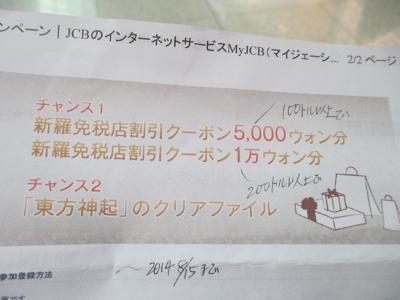 ンペーン｜JCBのインターネットサービスMyJCB(マイジェーシ... 2/2 ページ
チャンス1
100ドル以上で
新羅免税店割引クーポン5,000ウォン分
新羅免税店割引クーポン1万ウォン分
200ドル以上で
チャンス2
「東方神起」のクリアファイル
～2014 8/15まで
参加登録方法